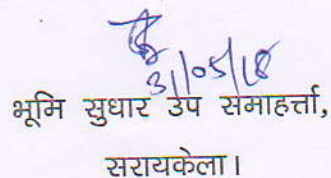 31/05/18
भूमि सुधार उप समाहर्त्ता,
सरायकेला।